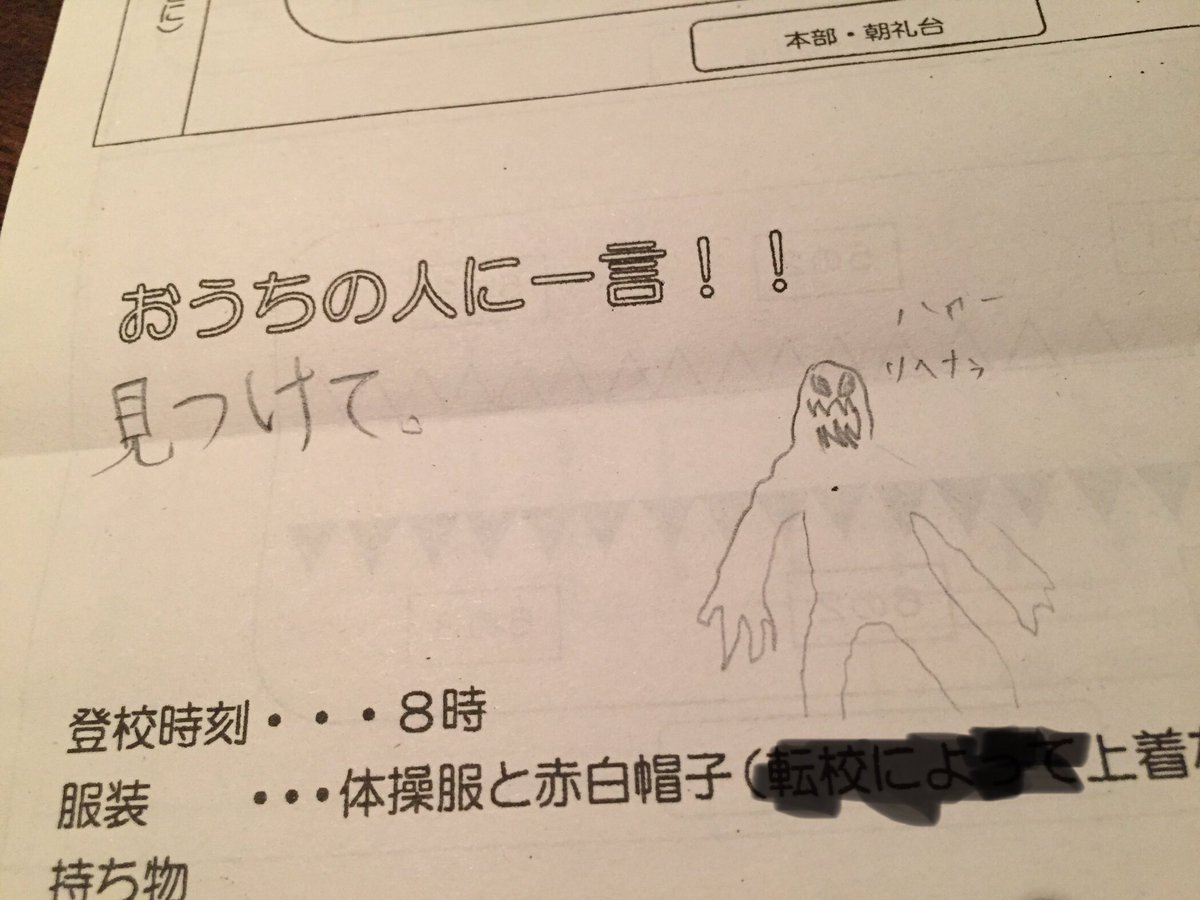 本部・朝礼台
おうちの人に一言！！
見つけて。
登校時刻・・・８時
服装　　・・・体操服と赤白帽子（転校によって上着
持ち物